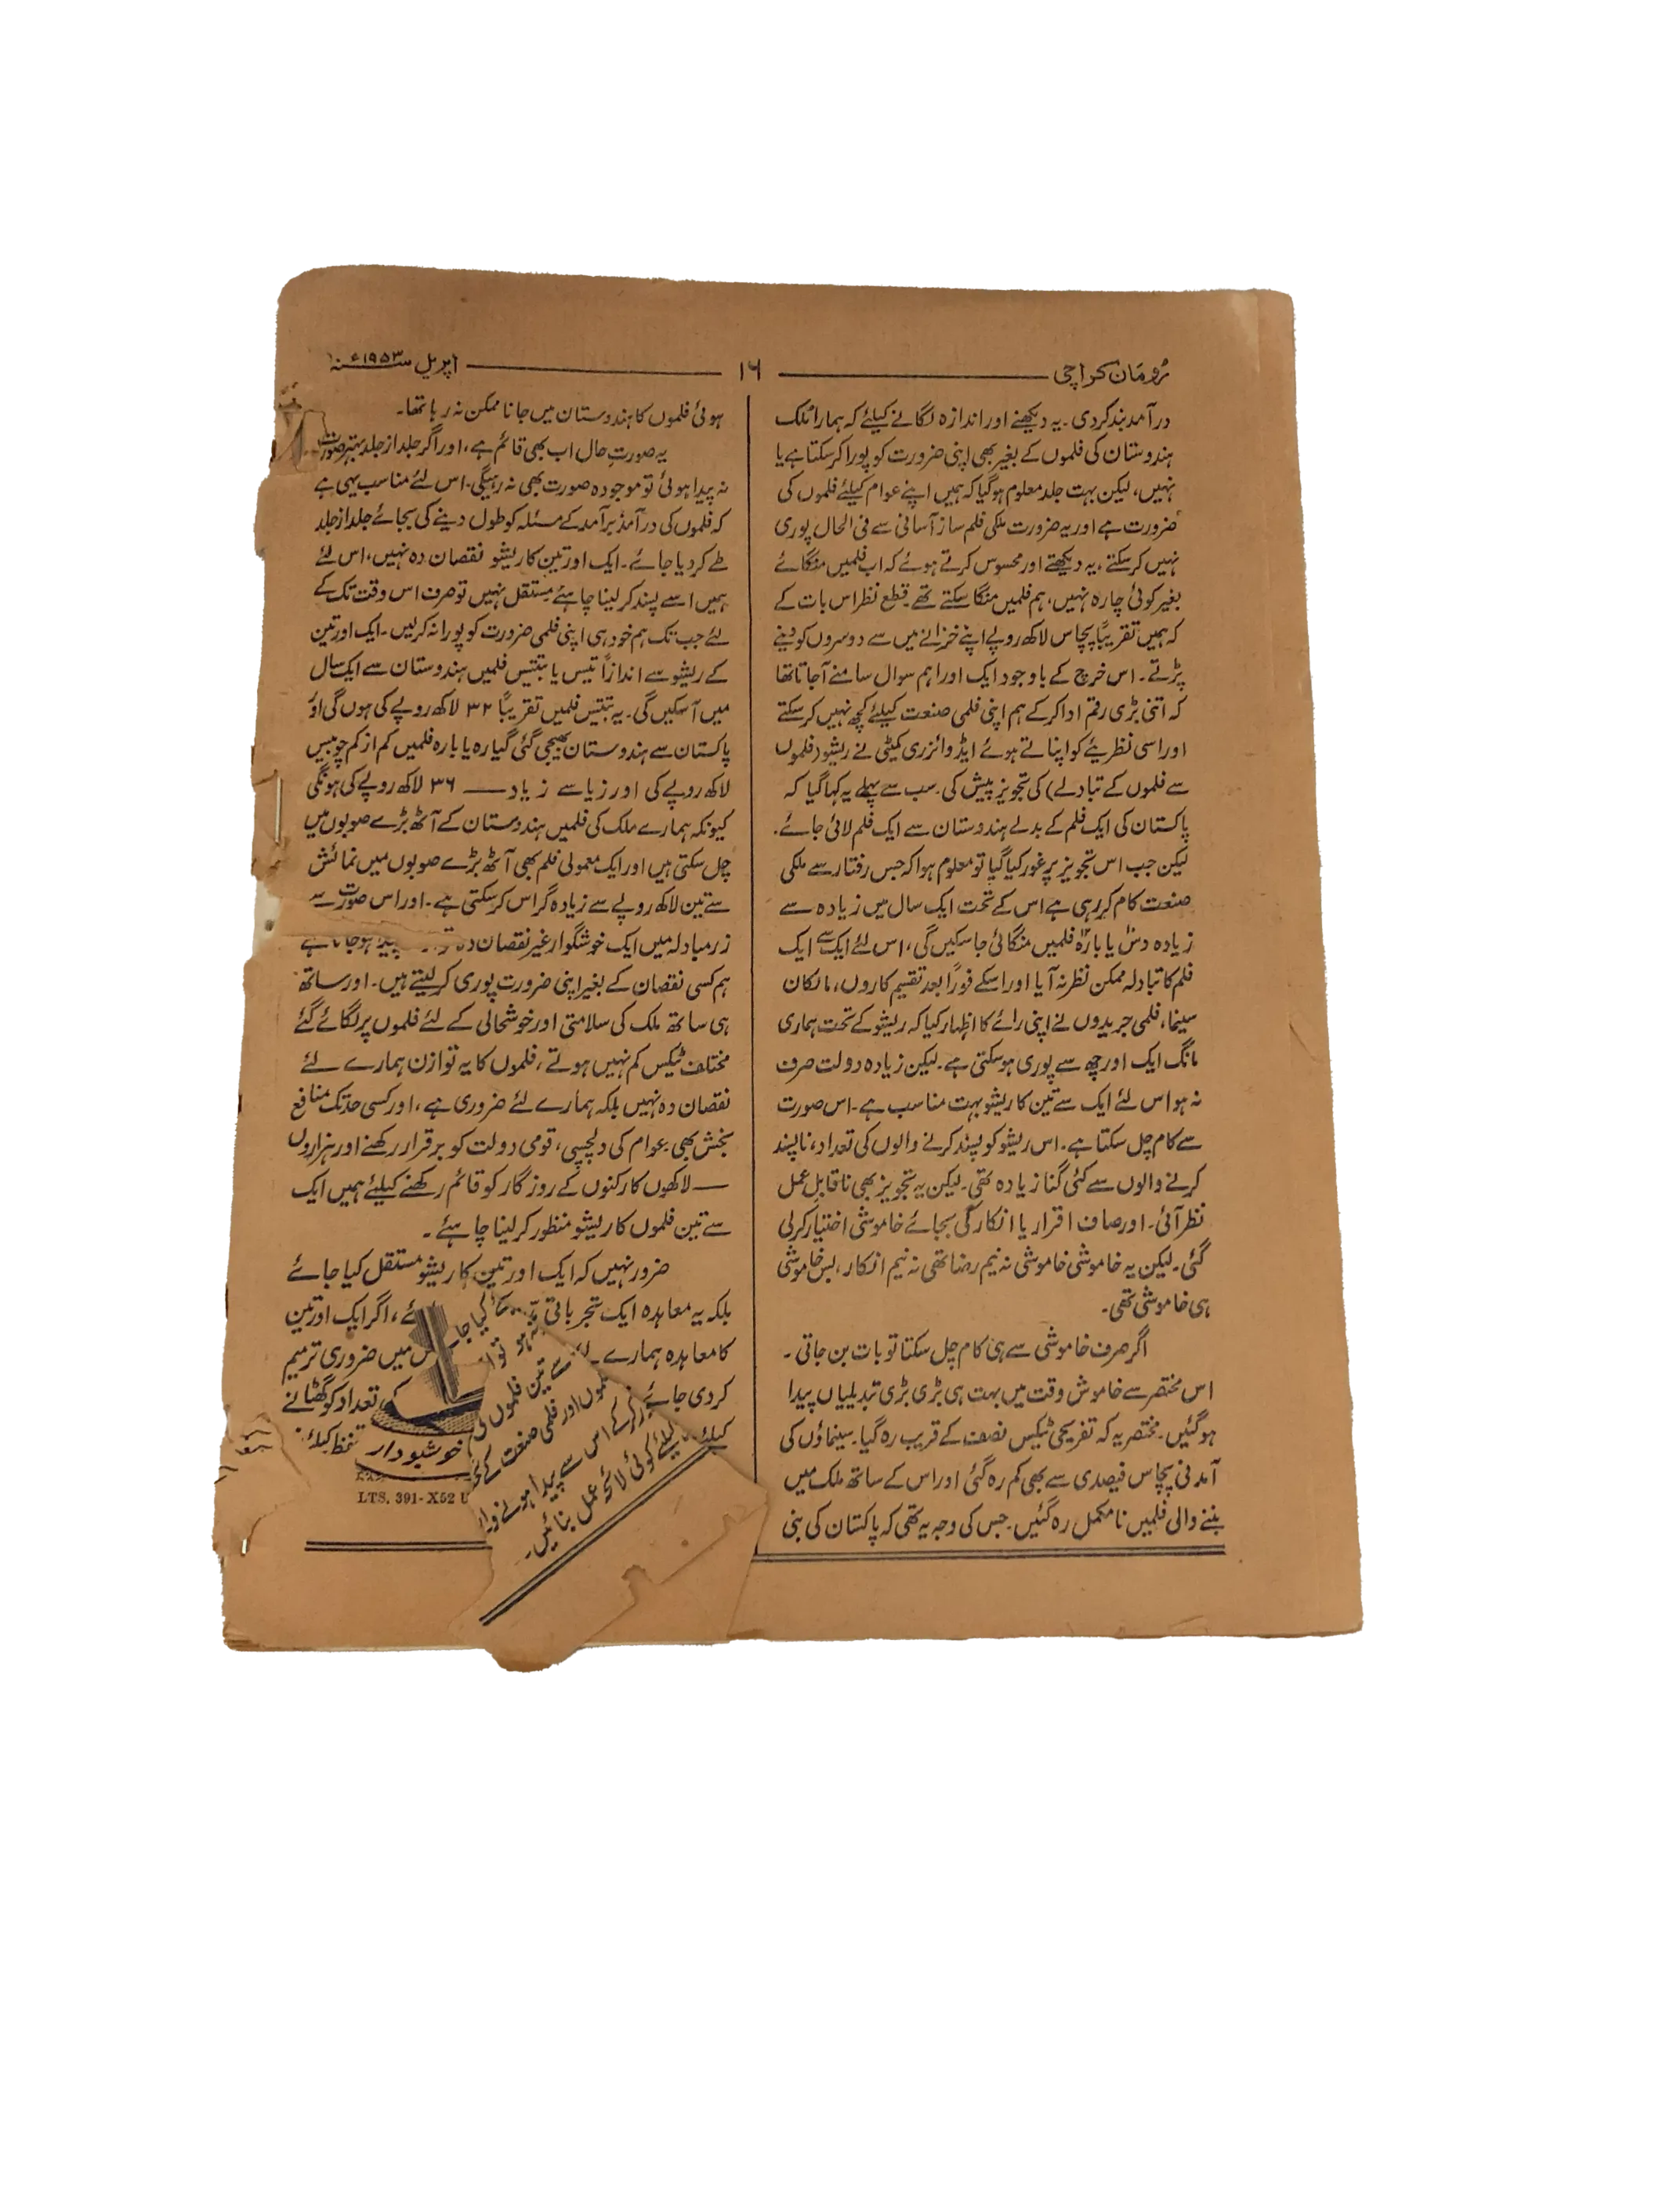 رُومَان کراچی ۱۶ اپریل سنہ ۱۹۵۳ء
درآمد بند کردی۔ یہ دیکھنے اور اندازہ لگانے کیلئے کہ ہمارا مُلک
ہندوستان کی فلموں کے بغیر بھی اپنی ضرورت کو پورا کرسکتا ہے یا
نہیں، لیکن بہت جلد معلوم ہوگیا کہ ہمیں اپنے عوام کیلئے فلموں کی
ضرورت ہے اور یہ ضرورت ملکی فلم ساز آسانی سے فی الحال پوری
نہیں کرسکتے، یہ دیکھتے اور محسوس کرتے ہوئے کہ اب فلمیں منگائے
بغیر کوئی چارہ نہیں، ہم فلمیں منگا سکتے تھے۔ قطع نظر اس بات کے
کہ ہمیں تقریباً پچاس لاکھ روپے اپنے خزانے میں سے دوسروں کو دینے
پڑتے۔ اس خرچ کے باوجود ایک اور اہم سوال سامنے آجاتا تھا
کہ اتنی بڑی رقم ادا کرکے ہم اپنی فلمی صنعت کیلئے کچھ نہیں کرسکتے
اور اسی نظریئے کو اپناتے ہوئے ایڈوائزری کمیٹی نے ریشو (فلموں
سے فلموں کے تبادلے) کی تجویز پیش کی۔ سب سے پہلے یہ کہا گیا کہ
پاکستان کی ایک فلم کے بدلے ہندوستان سے ایک فلم لائی جائے۔
لیکن جب اس تجویز پر غور کیا گیا تو معلوم ہوا کہ جس رفتار سے ملکی
صنعت کام کررہی ہے اس کے تحت ایک سال میں زیادہ سے
زیادہ دس یا بارہ فلمیں منگائی جاسکیں گی، اس لئے ایک سے ایک
فلم کا تبادلہ ممکن نظر نہ آیا اور اسکے فوراً بعد تقسیم کاروں، مالکان
سینما، فلمی جریدوں نے اپنی رائے کا اظہار کیا کہ ریشو کے تحت ہماری
مانگ ایک اور چھ سے پوری ہوسکتی ہے۔ لیکن زیادہ دولت صرف
نہ ہو اس لئے ایک سے تین کا ریشو بہت مناسب ہے۔ اس صورت
سے کام چل سکتا ہے۔ اس ریشو کو پسند کرنے والوں کی تعداد، ناپسند
کرنے والوں سے کئی گنا زیادہ تھی۔ لیکن یہ تجویز بھی ناقابلِ عمل
نظر آئی۔ اور صاف اقرار یا انکار کی بجائے خاموشی اختیار کرلی
گئی۔ لیکن یہ خاموشی خاموشی نہ نیم رضا تھی نہ نیم انکار، بس خاموشی
ہی خاموشی تھی۔
اگر صرف خاموشی سے ہی کام چل سکتا تو بات بن جاتی۔
اس مختصر سے خاموش وقت میں بہت ہی بڑی بڑی تبدیلیاں پیدا
ہوگئیں۔ مختصر یہ کہ تفریحی ٹیکس نصف کے قریب رہ گیا۔ سینماؤں کی
آمدنی پچاس فیصدی سے بھی کم رہ گئی اور اس کے ساتھ ملک میں
بننے والی فلمیں نامکمل رہ گئیں۔ جس کی وجہ یہ تھی کہ پاکستان کی بنی
ہوئی فلموں کا ہندوستان میں جانا ممکن نہ رہا تھا۔
یہ صورتِ حال اب بھی قائم ہے، اور اگر جلد از جلد بہتر صورت
نہ پیدا ہوئی تو موجودہ صورت بھی نہ رہیگی۔ اس لئے مناسب یہی ہے
کہ فلموں کی درآمد برآمد کے مسئلہ کو طول دینے کی بجائے جلد از جلد
طے کر دیا جائے۔ ایک اور تین کا ریشو نقصان دہ نہیں، اس لئے
ہمیں اسے پسند کر لینا چاہئے مستقل نہیں تو صرف اس وقت تک کے
لئے جب تک ہم خود ہی اپنی فلمی ضرورت کو پورا نہ کرلیں۔ ایک اور تین
کے ریشو سے اندازاً تیس یا بتیس فلمیں ہندوستان سے ایک سال
میں آسکیں گی۔ یہ بتیس فلمیں تقریباً ۳۲ لاکھ روپے کی ہوں گی اور
پاکستان سے ہندوستان بھیجی گئی گیارہ یا بارہ فلمیں کم از کم چوبیس
لاکھ روپے کی اور زیا سے زیاد — ۳۶ لاکھ روپے کی ہونگی
کیونکہ ہمارے ملک کی فلمیں ہندوستان کے آٹھ بڑے صوبوں میں
چل سکتی ہیں اور ایک معمولی فلم بھی آٹھ بڑے صوبوں میں نمائش
سے تین لاکھ روپے سے زیادہ گراس کرسکتی ہے۔ اور اس صورت سے
زرمبادلہ میں ایک خوشگوار غیر نقصان دہ پیدا ہوجاتا ہے
ہم کسی نقصان کے بغیر اپنی ضرورت پوری کرلیتے ہیں۔ اور ساتھ
ہی ساتھ ملک کی سلامتی اور خوشحالی کے لئے فلموں پر لگائے گئے
مختلف ٹیکس کم نہیں ہوتے، فلموں کا یہ توازن ہمارے لئے
نقصان دہ نہیں بلکہ ہمارے لئے ضروری ہے، اور کسی حد تک منافع
بخش بھی۔ عوام کی دلچسپی، قومی دولت کو برقرار رکھنے اور ہزاروں
— لاکھوں کارکنوں کے روزگار کو قائم رکھنے کیلئے ہمیں ایک
سے تین فلموں کا ریشو منظور کرلینا چاہئے۔
ضرور نہیں کہ ایک اور تین کا ریشو مستقل کیا جائے
بلکہ یہ معاہدہ ایک تجرباتی کیا جا ئے، اگر ایک اور تین
کا معاہدہ ہمارے ہو تو میں ضروری ترمیم
کردی جائے سے تین فلموں کی تعداد کو گھٹانے
کیلئے اور فلمی صنعت کے
کرکے اس سے پیدا ہونے
کیلئے کوئی لائحہ عمل بنائیں۔
خوشبودار
LTS. 391-X52 U